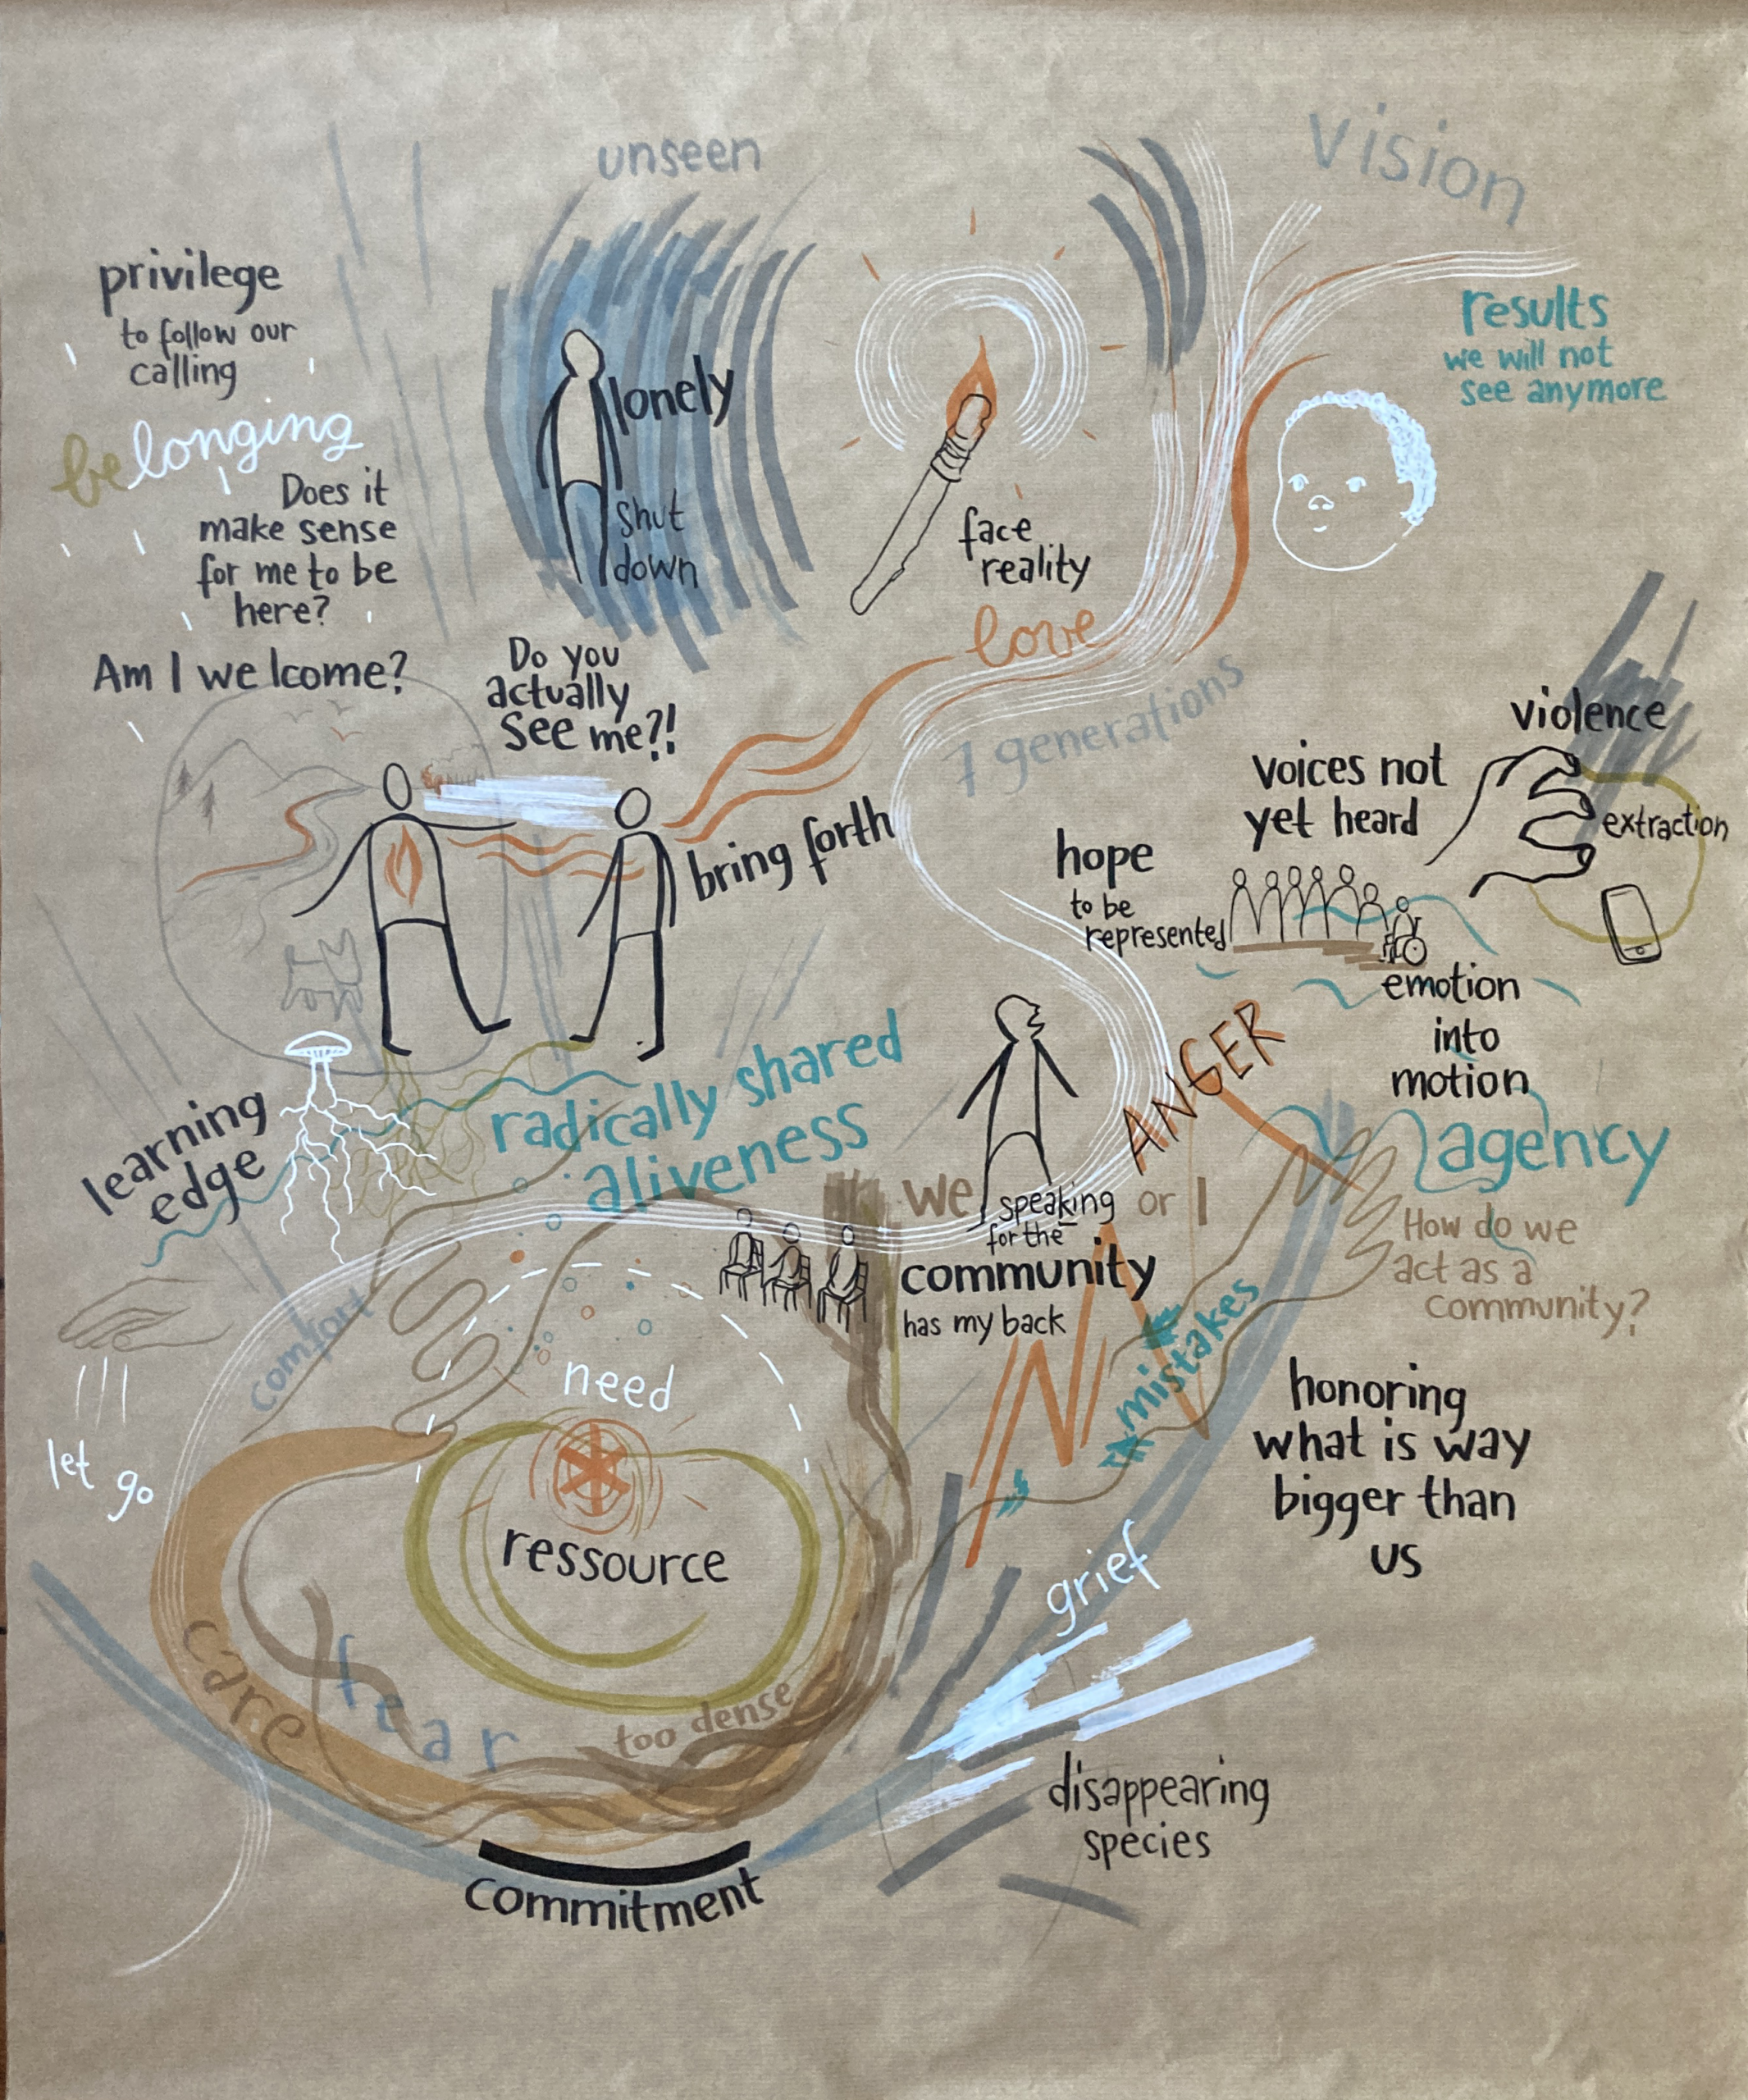 unseen
vision
privilege
to follow our
calling
belonging
Does it
make sense
for me to be
here?
Am I welcome?
lonely
shut
down
face
reality
results
we will not
see anymore
love
7 generations
Do you
actually
see me?!
bring forth
violence
voices not
yet heard
extraction
hope
to be
represented
emotion
into
motion
ANGER
agency
How do we
act as a
community?
learning
edge
radically shared
aliveness
we or I
speaking
for the
community
has my back
mistakes
comfort
let go
need
ressource
care
fear
too dense
honoring
what is way
bigger than
us
grief
disappearing
species
commitment